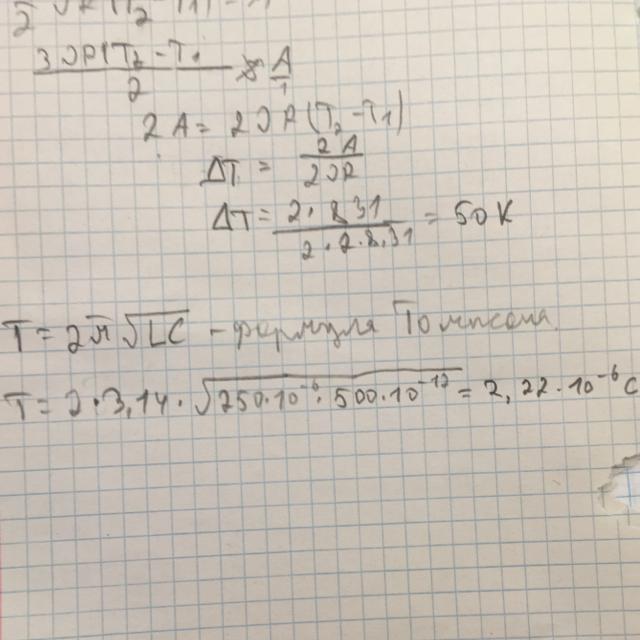 3 νR(T₂ - T₁ / 2 = A / 1
2A = 2νR(T₂ - T₁)
ΔT = 2A / 2νR
ΔT = 2 · 831 / 2 · 2 · 8,31 = 50 K
T = 2π√LC - формула Томпсона
T = 2 · 3,14 · √250 · 10⁻⁶ · 500 · 10⁻¹² = 2,22 · 10⁻⁶ с